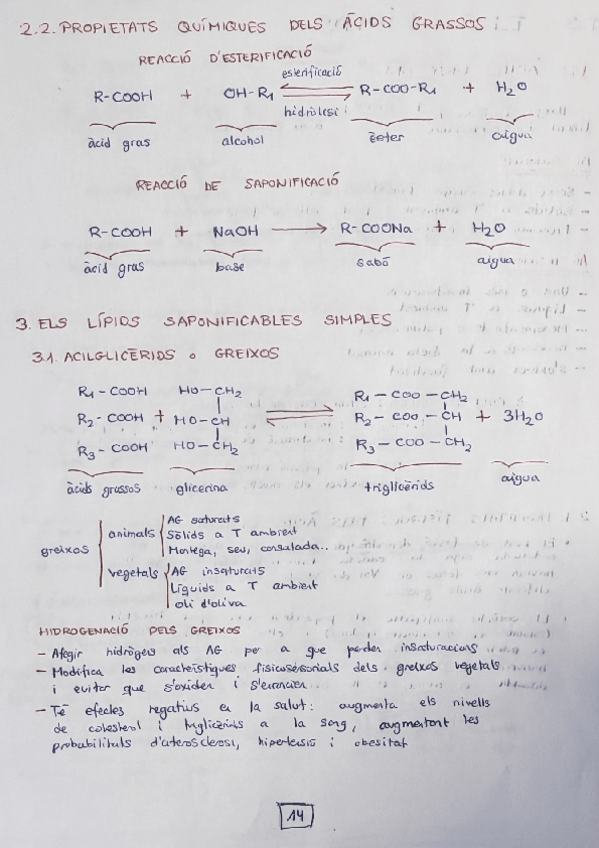 2.2. PROPIETATS QUÍMIQUES DELS ÀCIDS GRASSOS
REACCIÓ D'ESTERIFICACIÓ
R-COOH + OH-R1 esterificació hidròlisi R-COO-R1 + H2O
àcid gras alcohol èster aigua
REACCIÓ DE SAPONIFICACIÓ
R-COOH + NaOH → R-COONa + H2O
àcid gras base sabó aigua
3. ELS LÍPIDS SAPONIFICABLES SIMPLES
3.1. ACILGLICÈRIDS o GREIXOS
R1-COOH HO-CH2 R1-COO-CH2
R2-COOH + HO-CH R2-COO-CH + 3H2O
R3-COOH HO-CH2 R3-COO-CH2
àcids grassos glicerina triglicèrids aigua
greixos
animals
AG saturats
Sòlids a T ambient
Mantega, seu, cansalada..
vegetals
AG insaturats
Líquids a T ambient
Oli d'oliva
HIDROGENACIÓ DELS GREIXOS
- Afegir hidrògens als AG per a que perden insaturacions
- Modifica les característiques dels greixos vegetals
i evitar que s'oxiden i
- Té efectes negatius en la salut: augmenta els nivells
de colesterol i triglicèrids a la sang, augmentant les
probabilitats d'aterosclerosi, hipertensió i obesitat
14